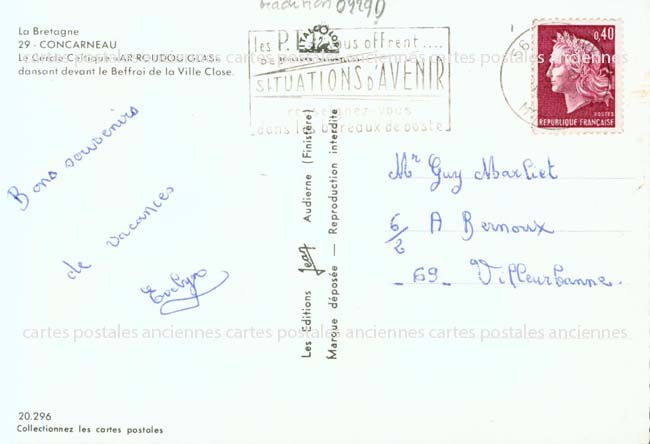 tradition 09290
La Bretagne
29 - CONCARNEAU
Le Cercle Celtique "AR ROUDOU GLAS"
dansant devant le Beffroi de la Ville Close.
les P. vous offrent ....
SITUATIONS D'AVENIR
renseignez-vous
dans les bureaux de poste
56
0,40
POSTES
REPUBLIQUE FRANÇAISE
cartes postales anciennes cartes postales anciennes cartes postales anciennes
Bons souvenirs
de vacances
Evelyne
Les Editions Jean Audierne (Finistère)
Marque déposée — Reproduction interdite
Mr Guy Marliet
6/2 A Bernoux
- 69 - Villeurbanne.
cartes postales anciennes cartes postales anciennes cartes postales anciennes
20.296
Collectionnez les cartes postales